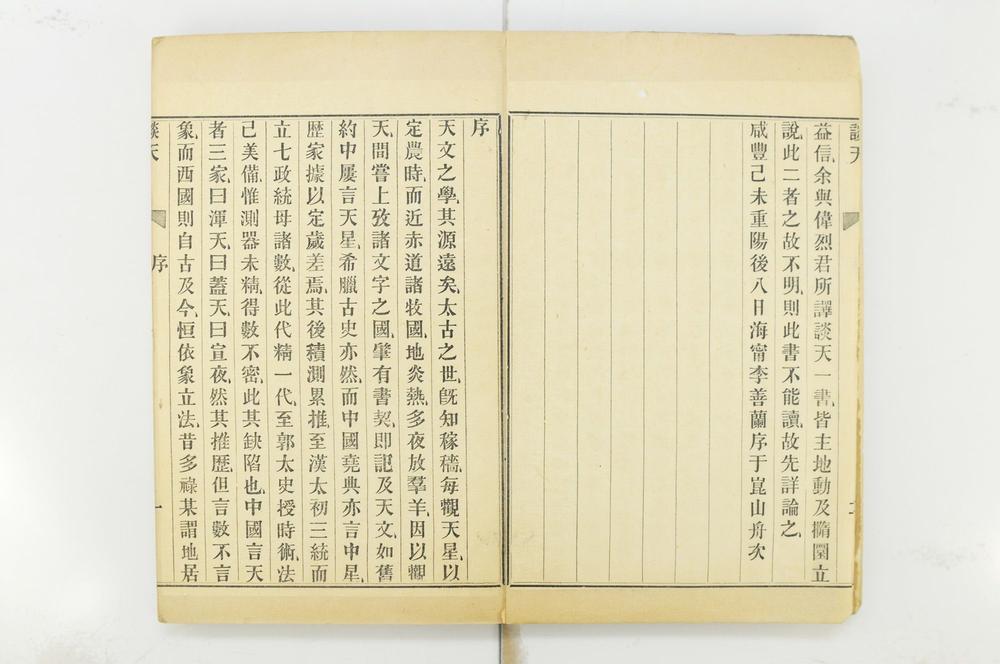 談天
益信、余與偉烈君所譯談天一書、皆主地動及橢圜立
說、此二者之故不明、則此書不能讀、故先詳論之、
咸豐己未重陽後八日海甯李善蘭序于崑山舟次
序
天文之學、其源遠矣、太古之世、旣知稼穡、每觀天星、以
定農時、而近赤道諸牧國、地炎熱、多夜放羣羊、因以觀
天、間嘗上攷諸文字之國、肇有書契、卽記及天文、如舊
約中屢言天星、希臘古史亦然、而中國堯典亦言中星、
歷家據以定歲差焉、其後積測累推、至漢太初三統而
立七政統母諸數、從此代精一代、至郭太史授時術、法
己美備、惟測器未精、得數不密、此其缺陷也、中國言天
者三家、曰渾天、曰蓋天、曰宣夜、然其推歷、但言數不言
象、而西國則自古及今、恒依象立法、昔多祿某謂地居
談天
序
一